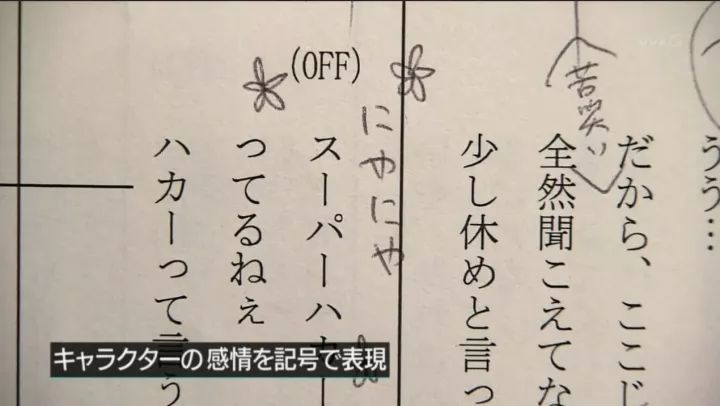 うう…
だから、ここじ
苦笑い
全然聞こえてな
少し休めと言っ
にやにや
(OFF)
スーパーハカー
ってるねぇ
ハカーって言う
キャラクターの感情を記号で表現